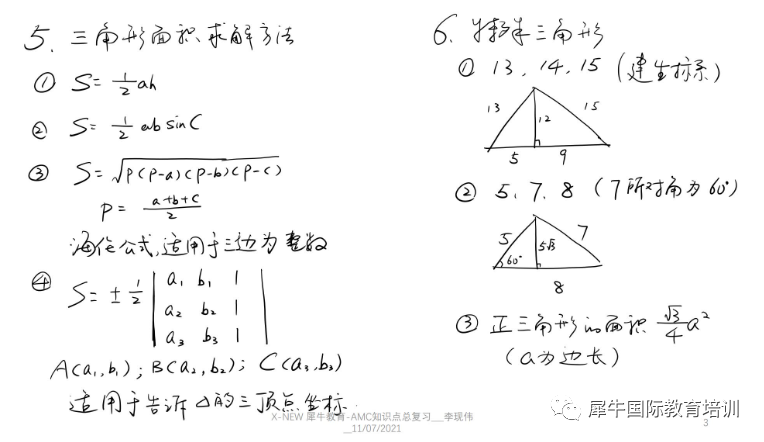 5. 三角形面积求解方法
① S= 1/2 ah
② S= 1/2 ab sinC
③ S=√P(P-a)(P-b)(P-c)
P= (a+b+c)/2
海伦公式,适用于三边为整数
④ S= ± 1/2 | a₁ b₁ 1 |
| a₂ b₂ 1 |
| a₃ b₃ 1 |
A(a₁,b₁); B(a₂,b₂); C(a₃,b₃)
适用于告诉△的三顶点坐标.
6. 特殊三角形
① 13, 14, 15 (建坐标系)
13
15
12
5
9
② 5, 7, 8 (7所对角为60°)
5
7
5√3
60°
8
③ 正三角形的面积 √3/4 a²
(a为边长)
X-NEW 犀牛教育-AMC知识点总复习__李现伟
__11/07/2021
犀牛国际教育培训
3